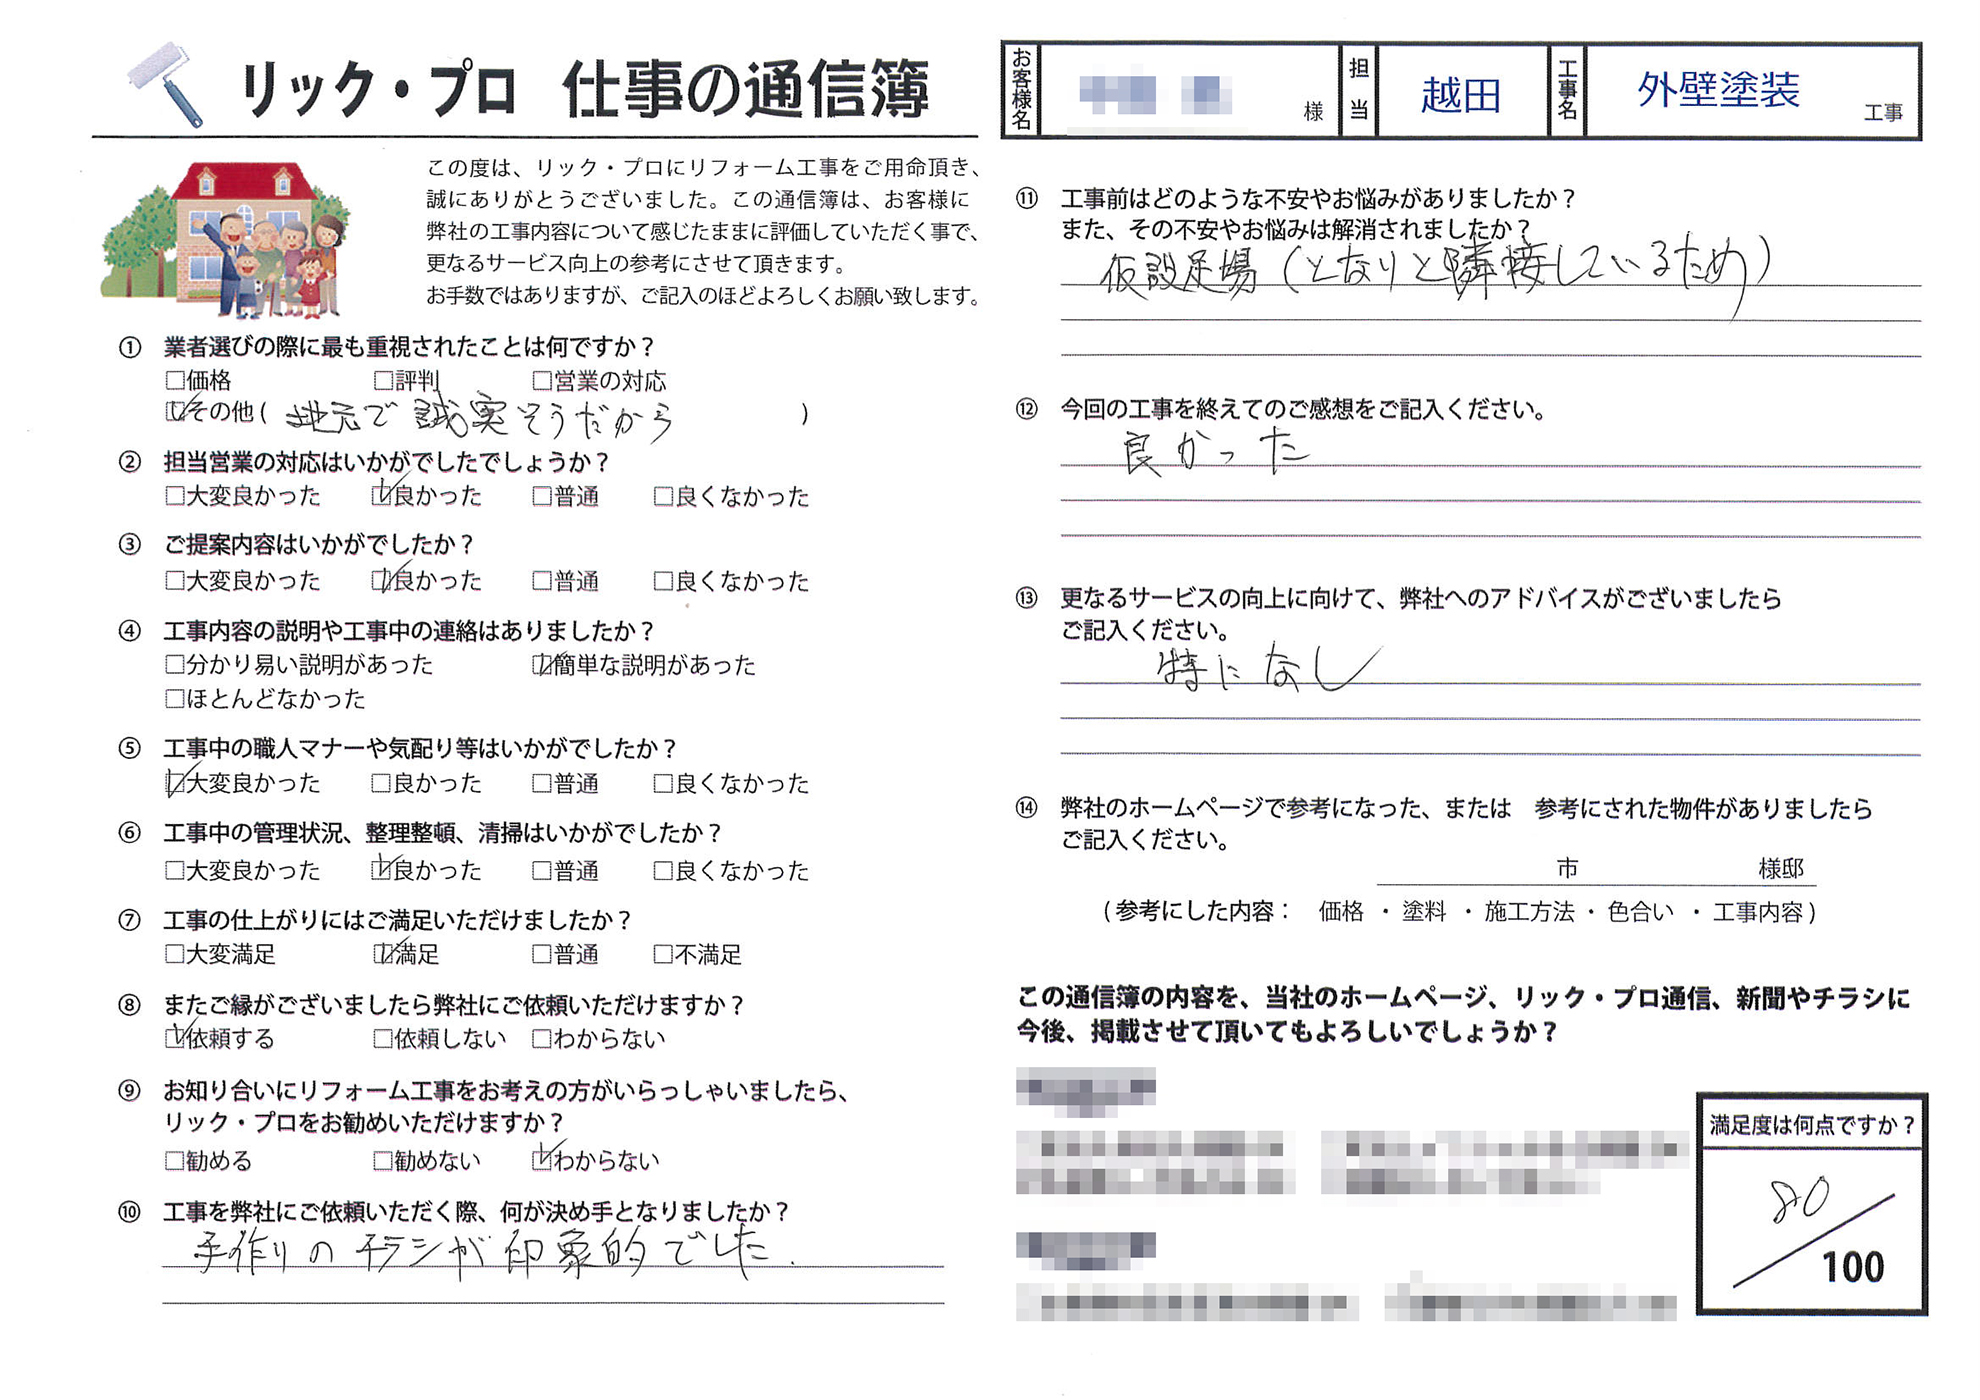 リック・プロ 仕事の通信簿
この度は、リック・プロにリフォーム工事をご用命頂き、
誠にありがとうございました。この通信簿は、お客様に
弊社の工事内容について感じたままに評価していただく事で、
更なるサービス向上の参考にさせて頂きます。
お手数ではありますが、ご記入のほどよろしくお願い致します。
① 業者選びの際に最も重視されたことは何ですか？
□価格 □評判 □営業の対応
☑その他( 地元で誠実そうだから )
② 担当営業の対応はいかがでしたでしょうか？
□大変良かった ☑良かった □普通 □良くなかった
③ ご提案内容はいかがでしたか？
□大変良かった ☑良かった □普通 □良くなかった
④ 工事内容の説明や工事中の連絡はありましたか？
□分かり易い説明があった ☑簡単な説明があった
□ほとんどなかった
⑤ 工事中の職人マナーや気配り等はいかがでしたか？
☑大変良かった □良かった □普通 □良くなかった
⑥ 工事中の管理状況、整理整頓、清掃はいかがでしたか？
□大変良かった ☑良かった □普通 □良くなかった
⑦ 工事の仕上がりにはご満足いただけましたか？
□大変満足 ☑満足 □普通 □不満足
⑧ またご縁がございましたら弊社にご依頼いただけますか？
☑依頼する □依頼しない □わからない
⑨ お知り合いにリフォーム工事をお考えの方がいらっしゃいましたら、
リック・プロをお勧めいただけますか？
□勧める □勧めない ☑わからない
⑩ 工事を弊社にご依頼いただく際、何が決め手となりましたか？
手作りのチラシが印象的でした.
お客様名 様 担当 越田 工事名 外壁塗装 工事
⑪ 工事前はどのような不安やお悩みがありましたか？
また、その不安やお悩みは解消されましたか？
仮設足場(となりと隣接しているため)
⑫ 今回の工事を終えてのご感想をご記入ください。
良かった
⑬ 更なるサービスの向上に向けて、弊社へのアドバイスがございましたら
ご記入ください。
特になし
⑭ 弊社のホームページで参考になった、または 参考にされた物件がありましたら
ご記入ください。
市 様邸
(参考にした内容： 価格 ・ 塗料 ・ 施工方法 ・ 色合い ・ 工事内容)
この通信簿の内容を、当社のホームページ、リック・プロ通信、新聞やチラシに
今後、掲載させて頂いてもよろしいでしょうか？
満足度は何点ですか？
80/100